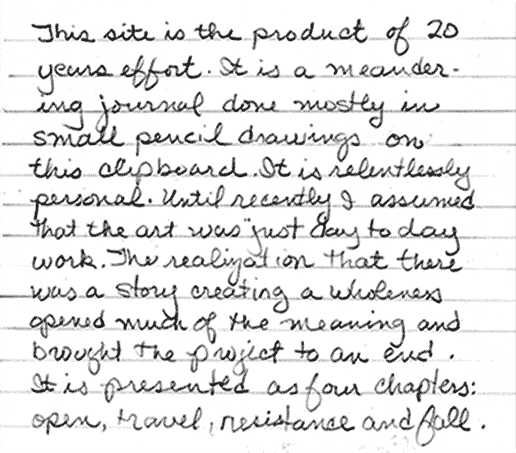 This site is the product of 20
years effort. It is a meander-
ing journal done mostly in
small pencil drawings on
this clipboard. It is relentlessly
personal. Until recently I assumed
that the art was "just day to day
work. The realization that there
was a story creating a wholeness
opened much of the meaning and
brought the project to an end.
It is presented as four chapters:
open, travel, resistance and fall.